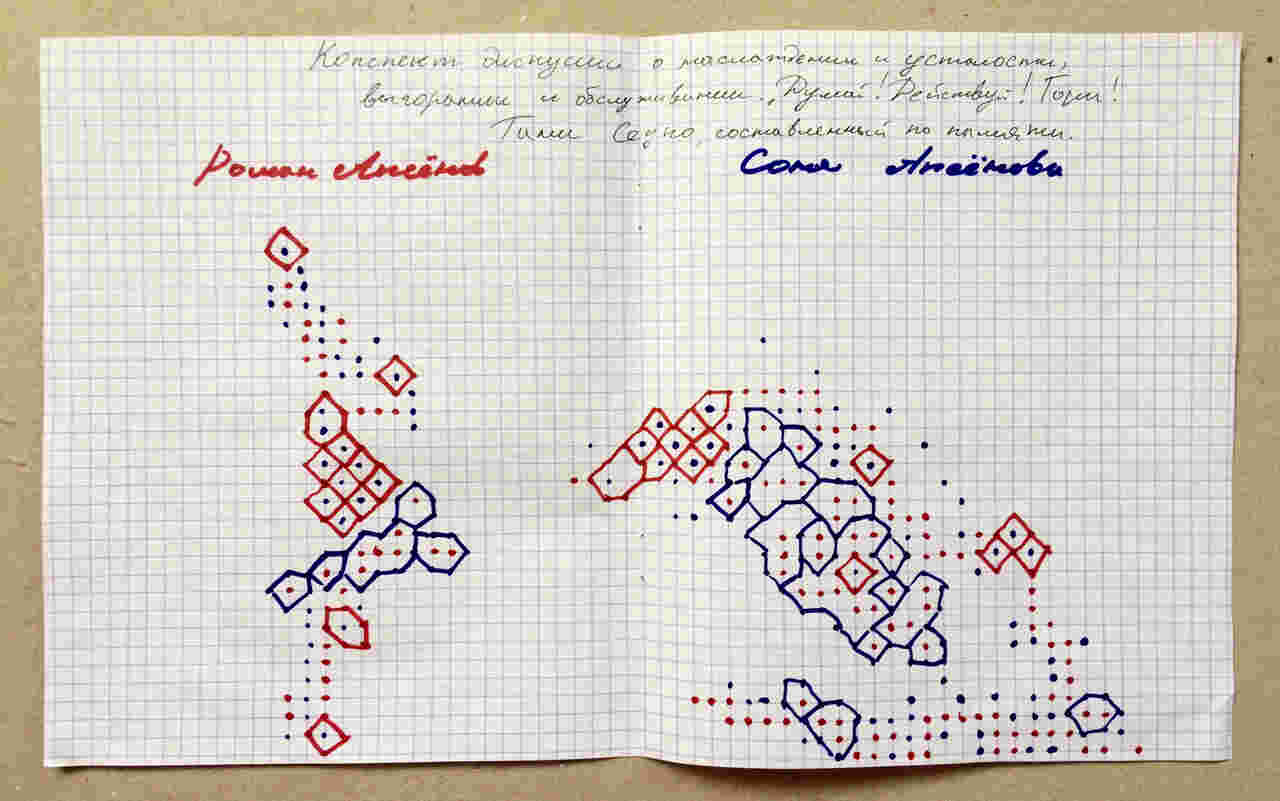 Конспект дискуссии о наслаждении и усталости,
выгорании и обслуживании. „Думай! Действуй! Гори!
Тили Сеуно, составленный по памяти.
Роман Аксёнов Соня Аксёнова